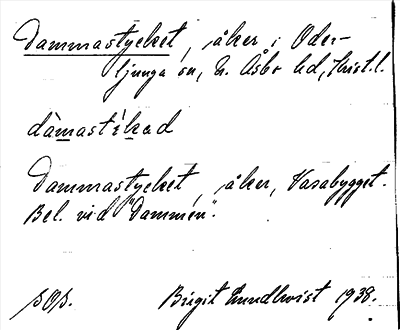 Dammastycket, åker i Öder-
ljunga sn, N. Åsbo hd, Krist. l.
dàmastíkəd
Dammastycket, åker, Vasabygget.
Bel. vid "Dammen".
sOs. Birgit Lundkvist 1938.